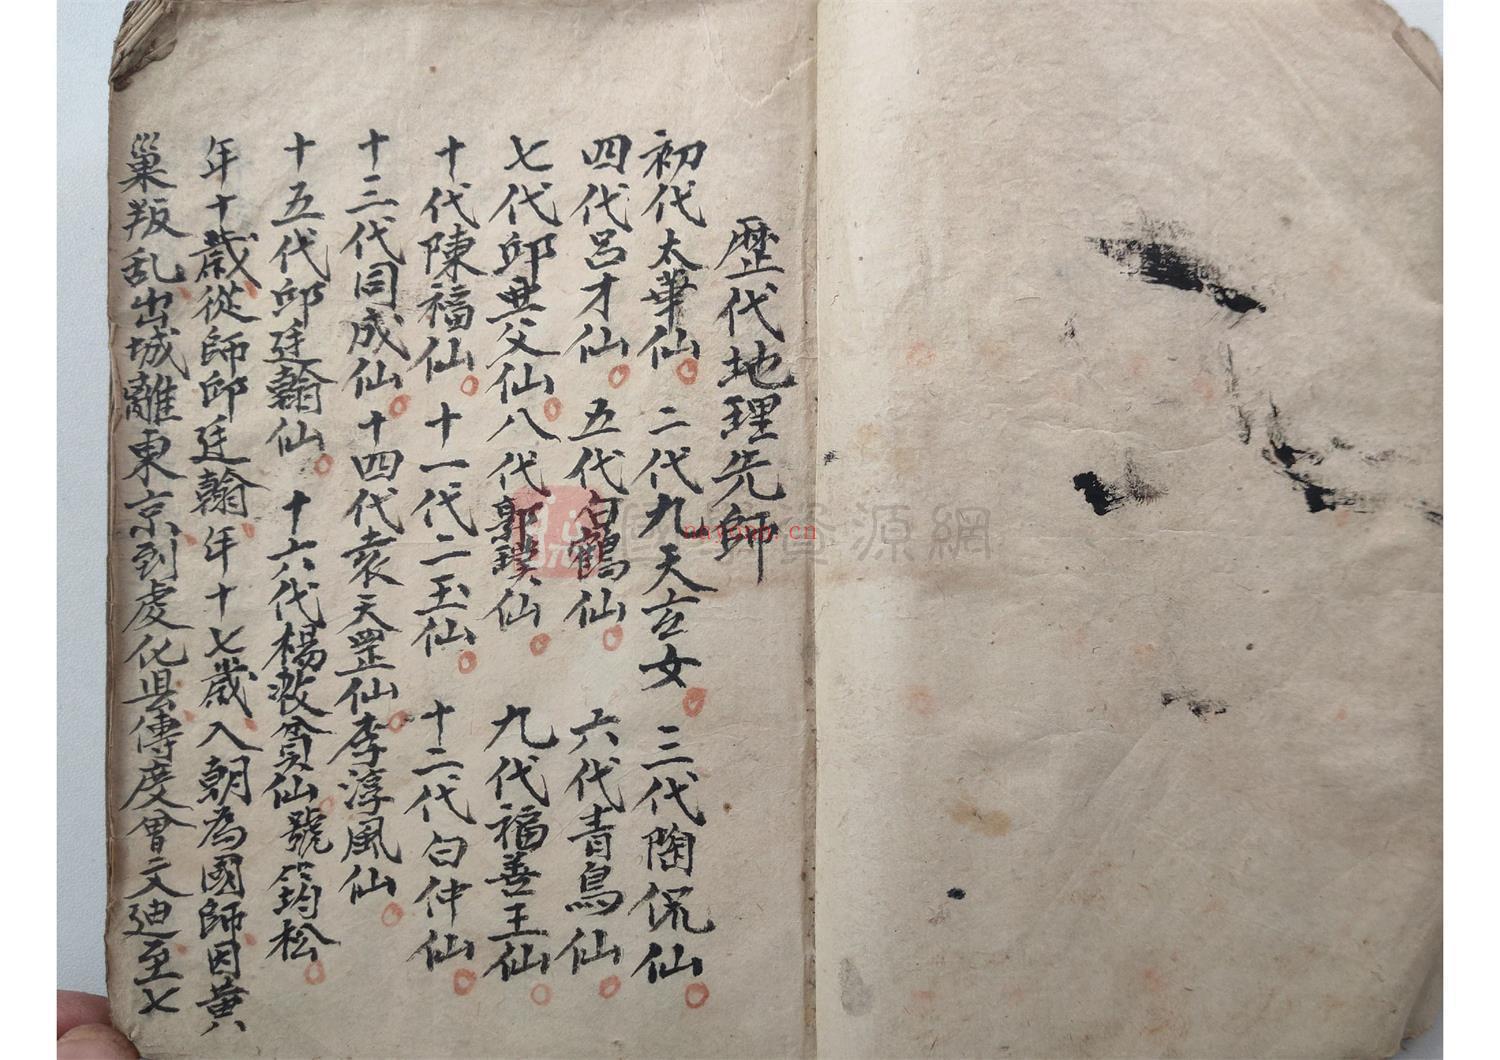 歷代地理先師
初代太華仙 二代九天玄女 三代陶侃仙
四代吕才仙 五代白鶴仙 六代青鳥仙
七代邱
父仙 八代郭璞仙 九代福善王仙
十代陳福仙 十一代二玉仙 十二代白仲仙
十三代同成仙 十四代袁天罡仙李淳風仙
十五代邱廷翰仙 十六代楊救貧仙號筠松
年十歲從師邱廷翰年十七歲入朝為國師因黄
巢叛乱出城離東京到虔化县傳度曾文迪至七
nayona.cn
資源網